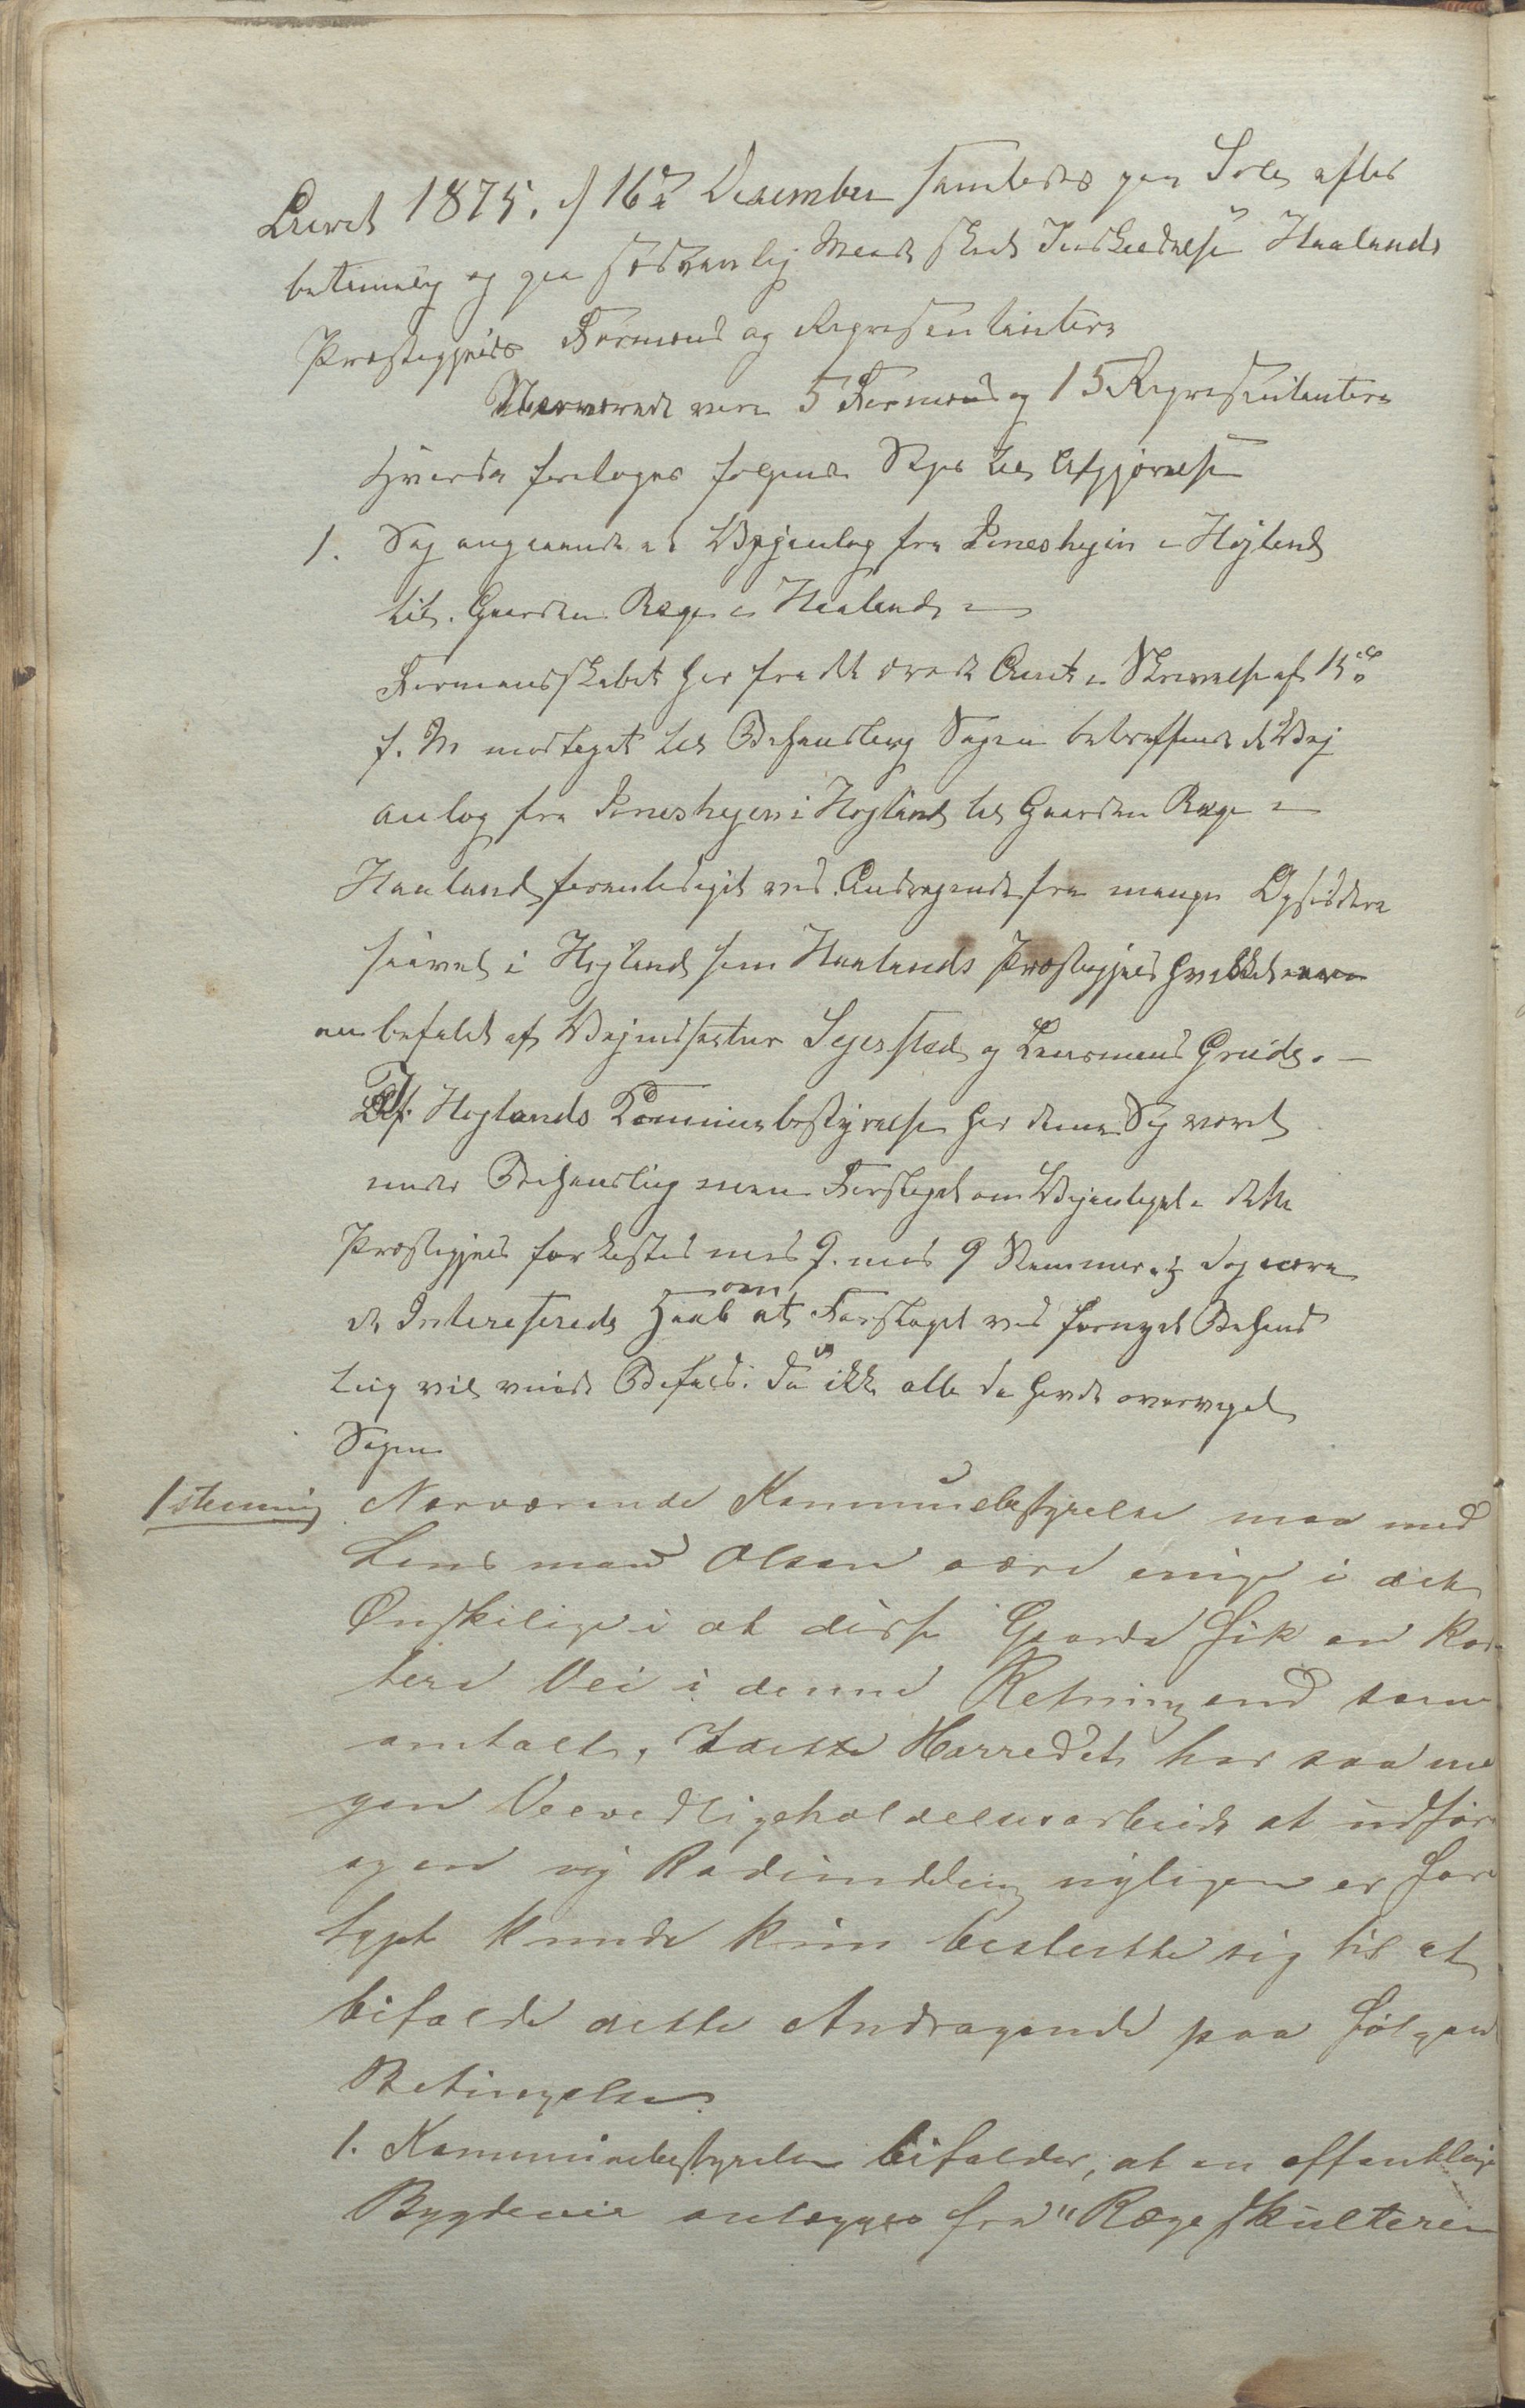 Aaret 1875. d 16de Desember samledes paa Sole efter
betimelig og paa sedvanlig Maade skeet Indkaldelse Haalands
Præstegjelds Formænd og Repræsentantere
Nærværende vare 5 Formænd og 15 Repræsentantere
hvorda foretoges følgende Sager til Afgjørelse
1. Sag angaaende et Vejanlæg fra i Højland
til Gaarden Ræge i Haaland
Formandskabet har fra det ærede Amt i Skrivelse af 15de
f. M modtaget til Behandling Sagen betreffende et Vej
anlæg fra i Højland til Gaarden Ræge i
Haaland foranlediget ved Andragende fra mange Opsiddere
saavel i Højland som Haalands Præstegjeld hvilket
anbefalet af Vejinspektør Segelsted og Lensmand Grude. —
I Højlands Kommunebestyrelse har denne Sag været
under Behandling men Forslaget om Vejanlæget i dette
Præstegjeld forkastet med 9 mod 9 Stemmer, dog nære
de Interesserede Haab om at Forslaget ved fornyet Behand
ling vil vinde Bifald. da ikke alle da havde overveget
Sagen
1stemmig Nærværende Kommunebestyrelse maa med
Lensmand Olsen være enige i det
Ønskelige i at disse Gaarde fik en kor-
tere Vei i denne Retning end som
omtalt, dette Herredet har saa me
gen Veivedligeholdelsesarbeide at udføre
og en ny Rodeinddeling nyligen er fore
tagt kunde kun beslutte sig til at
bifalde dette Andragende paa følgen
Betingelser
1. Kommunebestyrelsen bifalder, at en offentlig
Bygdevei anlægges fra "Rægeskulteren